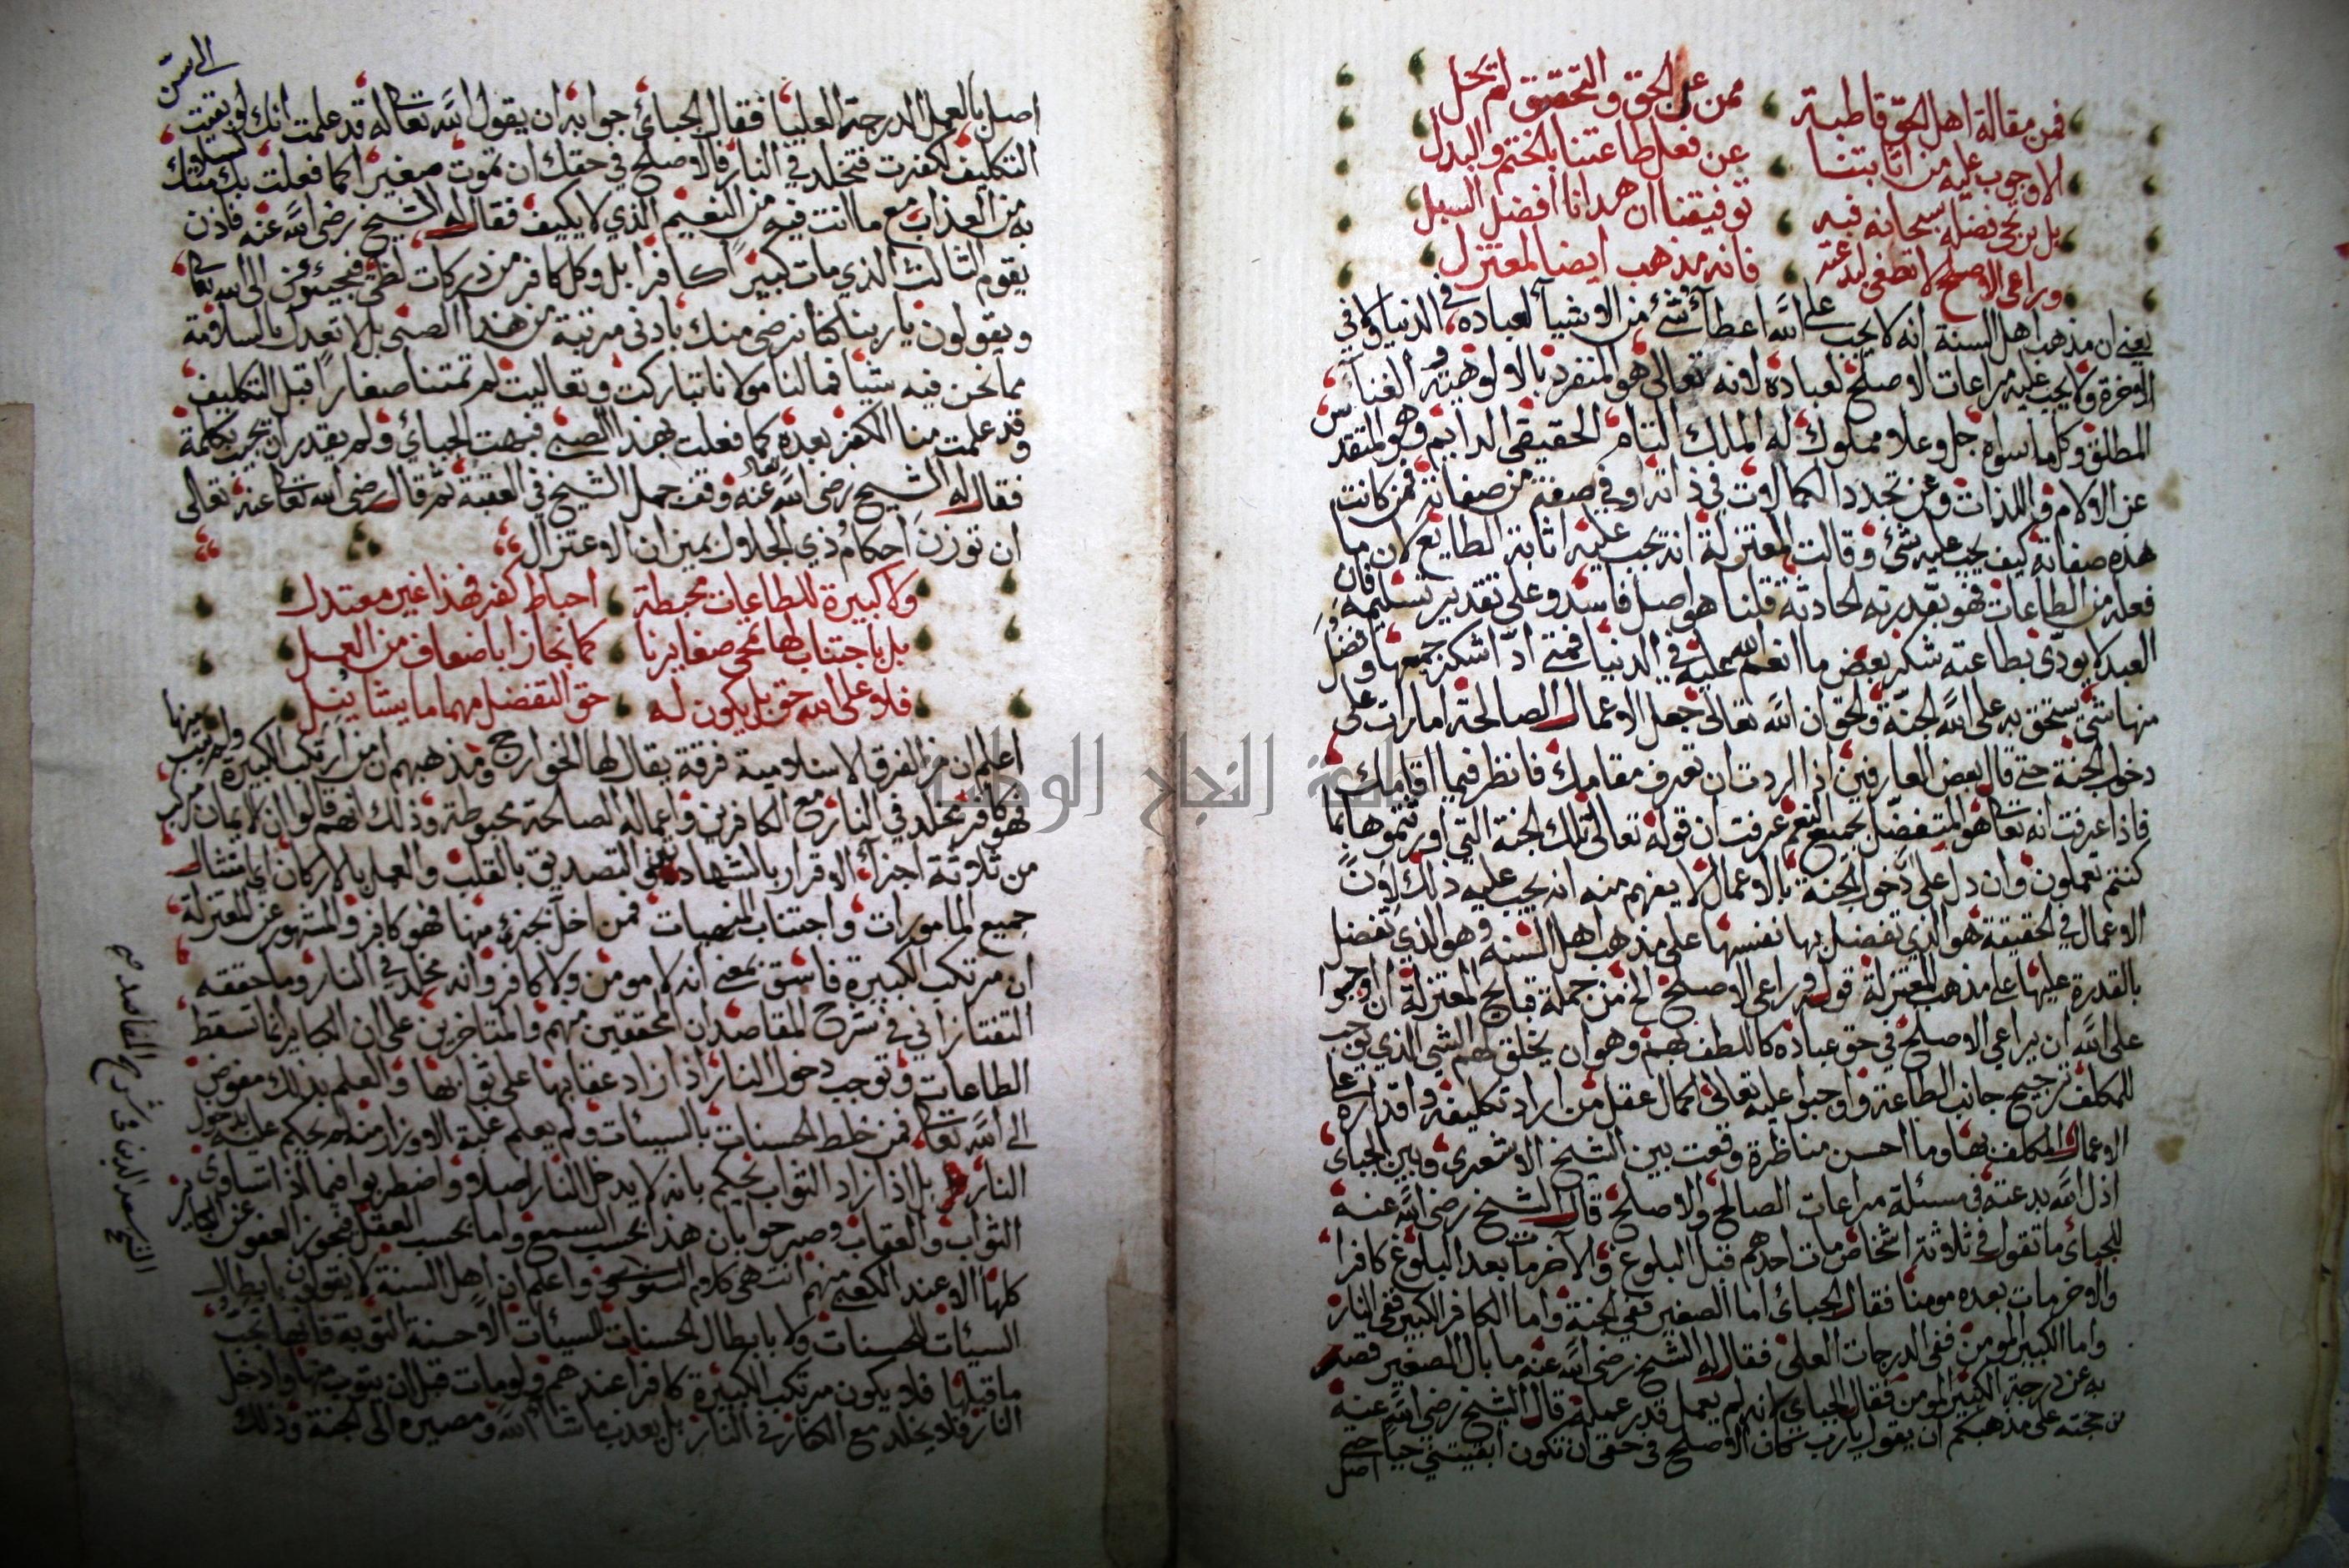 فمن مقالة اهل الحق قاطبة ممن عن الحق والتحقيق لم تحل
الاوجوب عليه من اثابتنا عن فعل طاعتنا بالختم والبدل
بل نرتجي فضله سبحانه فيه توفيقنا ان هدانا افضل السبل
وراعي الاصلح لا تطغى لبدعته فانه مذهب ايضا لمعتزل
يعني ان مذهب اهل السنة انه لا يجب على الله اعطاء شئ من الاشياء لعباده في الدنيا ولا في
الاخرة ولا يجب عليه مراعات الاصلح لعباده لانه تعالى هو المنفرد بالالوهية والغناء
المطلق وكل ما سواه جل وعلا مملوك له الملك التام الحقيقي الدايم وهو المتقدس
عن الالام واللذات وعن تجدد الكمالات في ذاته او في صفة من صفاته فمن كانت
هذه صفاته كيف يجب عليه شئ وقالت المعتزلة انه يجب عليه اثابة الطايع لان ما
فعله من الطاعات فهو بقدرته الحادثة قلنا هو اصل فاسد وعلى تقدير تسليمه فان
العبد لا يودي بطاعته شكر بعض ما انعم الله عليه في الدنيا فمتى ادا شكر جميعها وفضل
منها شئ يستحق به على الله الجنة والحق ان الله تعالى جعل الاعمال الصالحة امارات على
دخول الجنة حتى قال بعض العارفين اذا اردت ان تعرف مقامك فانظر فيما اقامك
فاذا عرفت انه تعالى هو المتفضل بجميع النعم عرفت ان قوله تعالى تلك الجنة التي اورثتموها بما
كنتم تعملون وان دل على دخول الجنة بالاعمال لا يفهم منه انه يجب عليه ذلك لان
الاعمال في الحقيقة هو الذي تفضل بها نفسها على مذهب اهل السنة وهو الذي تفضل
بالقدرة عليها على مذهب المعتزلة قوله وراعي الاصلح الخ من جملة قبايح المعتزلة ان اوجبوا
على الله ان يراعي الاصلح في حق عباده كاللطف بهم وهو ان يخلق لهم الشئ الذي يوجب
للمكلف ترجيح جانب الطاعة واوجبوا عليه تعالى اكمال عقل من اراد تكليفه واقداره على
الاعمال المكلف بها وما احسن مناظرة وقعت بين الشيخ الاشعري وبين الجبائ
اذل الله بدعته في مسئلة مراعات الصالح والاصلح قال الشيخ رضى الله عنه
للجبائ ما تقول في ثلاثة اشخاص مات احدهم قبل البلوغ والآخر مات بعد البلوغ كافرا
والاخر مات بعده مومنا فقال الجبائ اما الصغير ففي الجنة واما الكافر الكبير ففي النار
واما الكبير المومن ففي الدرجات العلى فقال له الشيخ رضى الله عنه ما بال الصغير قصر
به عن درجة الكبير المومن فقال الجبائ لانه لم يعمل قدر عمله قال الشيخ رضى الله عنه
من حجته على مذهبكم ان يقول يا رب كان الاصلح في حقي ان تكون ابقيتني حيا حتى
اصل
الى سن
اصل بالعمل الدرجة العليا فقال الجبائ جوابه ان يقول الله تعالى له قد علمت انك لو بقيت
التكليف لكفرت فتخلد في النار فالاصلح في حقك ان تموت صغيرا كما فعلت بك لسلامتك
به من العذاب مع ما انت فيه من النعيم الذي لا يكيف فقال له الشيخ رضى الله عنه فاذن
يقوم الثالث الذي مات كبيرا كافرا بل وكل كافر من دركات لظى فيجيئون الى الله تعالى
ويقولون يا ربنا كنا نرضى منك بادنى مرتبة من هذا الصبي بل لا تعدل بالسلامة
مما نحن فيه شيئا فما لنا مولانا تباركت وتعاليت لم تمتنا صغارا قبل التكليف
وقد علمت منا الكفر بعده كما فعلت بهذا الصبي فبهت الجبائ ولم يقدر ان يجيب بكلمة
فقال له الشيخ رضى الله تعالى عنه وقف حمار الشيخ في العقبة ثم قال رضى الله تعالى عنه تعالى
ان توزن احكام ذي الجلال بميزان الاعتزال
ولا كبيرة للطاعات محبطة احباط كفر فهذا غير معتدل
بل باجتناب لها تمحى صغايرنا كما نجازا باضعاف من العمل
فلا على الله حق بل يكون له حق التفضل مهما ما يشا ينل
اعلم ان من الفرق الاسلامية فرقة يقال لها الخوارج ومذهبهم ان من ارتكب الكبيرة ولم يتب منها
فهو كافر مخلد في النار مع الكافرين واعماله الصالحة محبوطة وذلك انهم قالوا ان الايمان مركب
من ثلاثة اجزاء الاقرار بالشهادتين والتصديق بالقلب والعمل بالاركان اي امتثال
جميع المامورات واجتناب المنهيات فمن اخل بجزء منها فهو كافر والمشهور عن المعتزلة
ان مرتكب الكبيرة فاسق بمعنى انه لا مومن ولا كافر وانه مخلد في النار وما حققه
التفتازاني في شرح المقاصد ان المحققين منهم والمتاخرين على ان الكباير انما تسقط
الطاعات وتوجب دخول النار اذا زاد عقابها على ثوابها والعلم بذلك مفوض
الى الله تعالى فمن خلط الحسنات بالسيئات ولم يعلم غلبة الاوزار منه لم يحكم عليه بدخول
النار بل اذا زاد الثواب يحكم بانه لا يدخل النار اصلا واضطربوا فيما اذا تساوى
الثواب والعقاب وصرحوا بان هذا بحسب السمع واما بحسب العقل فيجوز العفو عن الكباير
كلها الا عند الكعبي منهم انتهى كلام السنوسي واعلم ان اهل السنة لا يقولون بابطال
السيئات للحسنات ولا بابطال الحسنات للسيئات الا حسنة التوبة فانها تجب
ما قبلها فلا يكون مرتكب الكبيرة كافرا عندهم ولو مات قبل ان يتوب منها وادخل
النار فلا يخلد مع الكفار في النار بل يعذب ما شاء الله ومصيره الى الجنة وذلك
الشيخ سعد الدين في شرح المقاصد صح
جامعة النجاح الوطنية